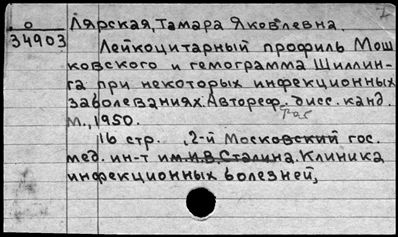 о
34903
Лярская, Тамара Яковлевна.
Лейкоцитарный профиль Мош
ковского и гемограмма Шиллин-
га при некоторых инфекционных
заболеваниях. Автореф. дисс. канд.
М., 1950.
16 стр. , 2-й Московский гос.
мед. ин-т им. И.В. Сталина. Клиника
инфекционных болезней,